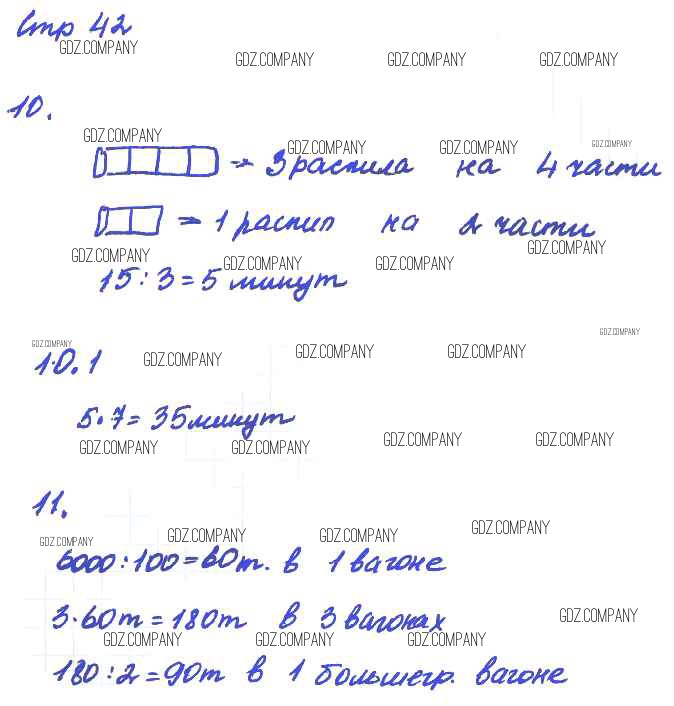 Стр 42
GDZ.COMPANY
GDZ.COMPANY GDZ.COMPANY GDZ.COMPANY
10.
GDZ.COMPANY GDZ.COMPANY GDZ.COMPANY GDZ.COMPANY
→ 3 распила на 4 части
→ 1 распил на 2 части
GDZ.COMPANY GDZ.COMPANY GDZ.COMPANY GDZ.COMPANY
15 : 3 = 5 минут
GDZ.COMPANY GDZ.COMPANY
10.1 GDZ.COMPANY GDZ.COMPANY GDZ.COMPANY
5 · 7 = 35 минут
GDZ.COMPANY GDZ.COMPANY GDZ.COMPANY GDZ.COMPANY
11.
GDZ.COMPANY GDZ.COMPANY GDZ.COMPANY GDZ.COMPANY
6000 : 100 = 60 т. в 1 вагоне
3 · 60 т = 180 т в 3 вагонах
GDZ.COMPANY GDZ.COMPANY GDZ.COMPANY GDZ.COMPANY
180 : 2 = 90 т в 1 большегр. вагоне